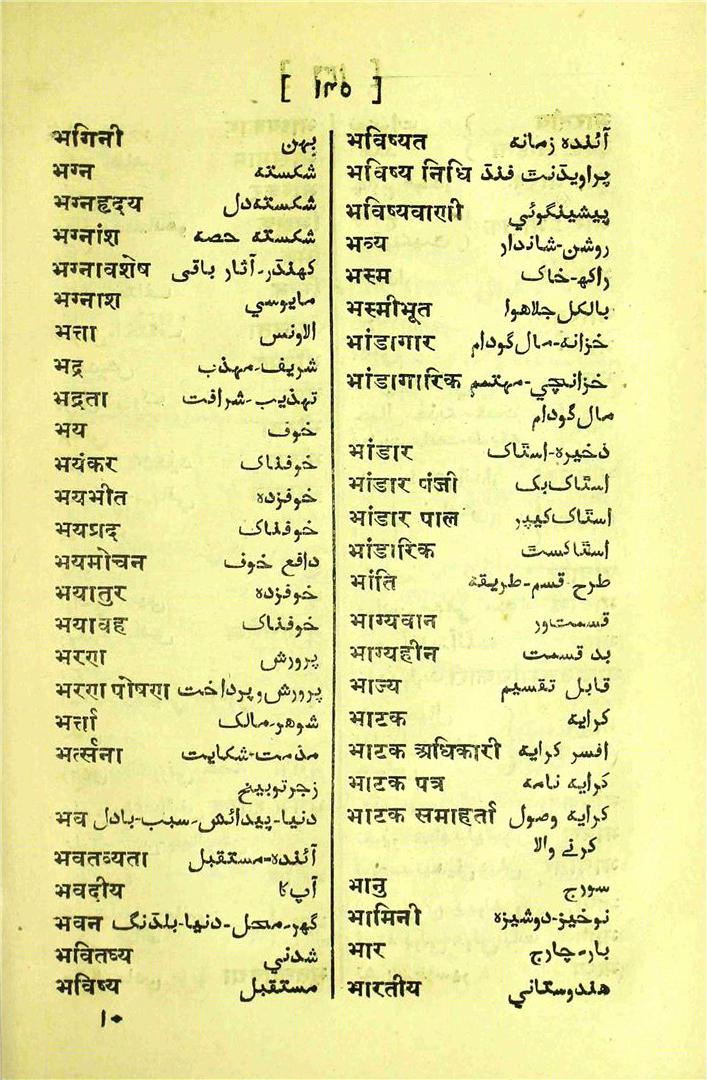 [ ۱۴۵ ]
भगिनी بہن
भग्न شکستہ
भग्नहृदय شکستہ دل
भग्नांश شکستہ حصہ
भग्नावशेष کھنڈر-آثار باقی
भग्नाश مایوسی
भत्ता الاونس
भद्र شریف-مہذب
भद्रता تہذیب-شرافت
भय خوف
भयंकर خوفناک
भयभीत خوفزدہ
भयप्रद خوفناک
भयमोचन دافع خوف
भयातुर خوفزدہ
भयावह خوفناک
भरण پرورش
भरण पोषण پرورش و پرداخت
भर्त्ता شوہر-مالک
भर्त्सना مذمت-شکایت
زجر توبیخ
भव دنیا-پیدائش-سبب-بادل
भवतव्यता آئندہ-مستقبل
भवदीय آپ کا
भवन گھر-محل-دنیا-بلڈنگ
भवितव्य شدنی
भविष्य مستقبل
۱۰
भविष्यत آئندہ زمانہ
भविष्य निधि پراویڈنٹ فنڈ
भविष्यवाणी پیشینگوئی
भव्य روشن-شاندار
भस्म راکھ-خاک
भस्मीभूत بالکل جلا ہوا
भांडागार خزانہ-مال گودام
भांडागारिक خزانچی-مہتمم
مال گودام
भांडार ذخیرہ-اسٹاک
भांडार पंजी اسٹاک بک
भांडार पाल اسٹاک کیپر
भांडारिक اسٹاکسٹ
भांति طرح-قسم-طریقہ
भाग्यवान قسمت ور
भाग्यहीन بد قسمت
भाज्य قابل تقسیم
भाटक کرایہ
भाटक अधिकारी افسر کرایہ
भाटक पत्र کرایہ نامہ
भाटक समाहर्ता کرایہ وصول
کرنے والا
भानु سورج
भामिनी نوخیز-دوشیزہ
भार بار-چارج
भारतीय ہندوستانی